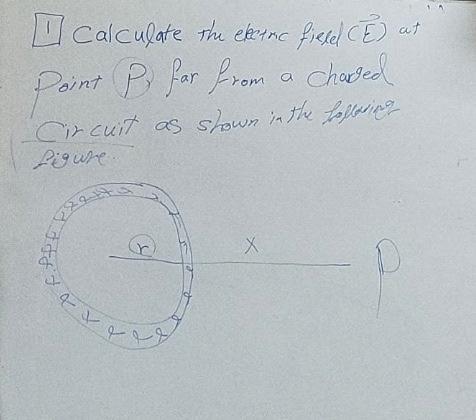 1 Calculate the electric field (E⃗) at
Point P, far from a charged
Circuit as shown in the following
figure.
r
x
P